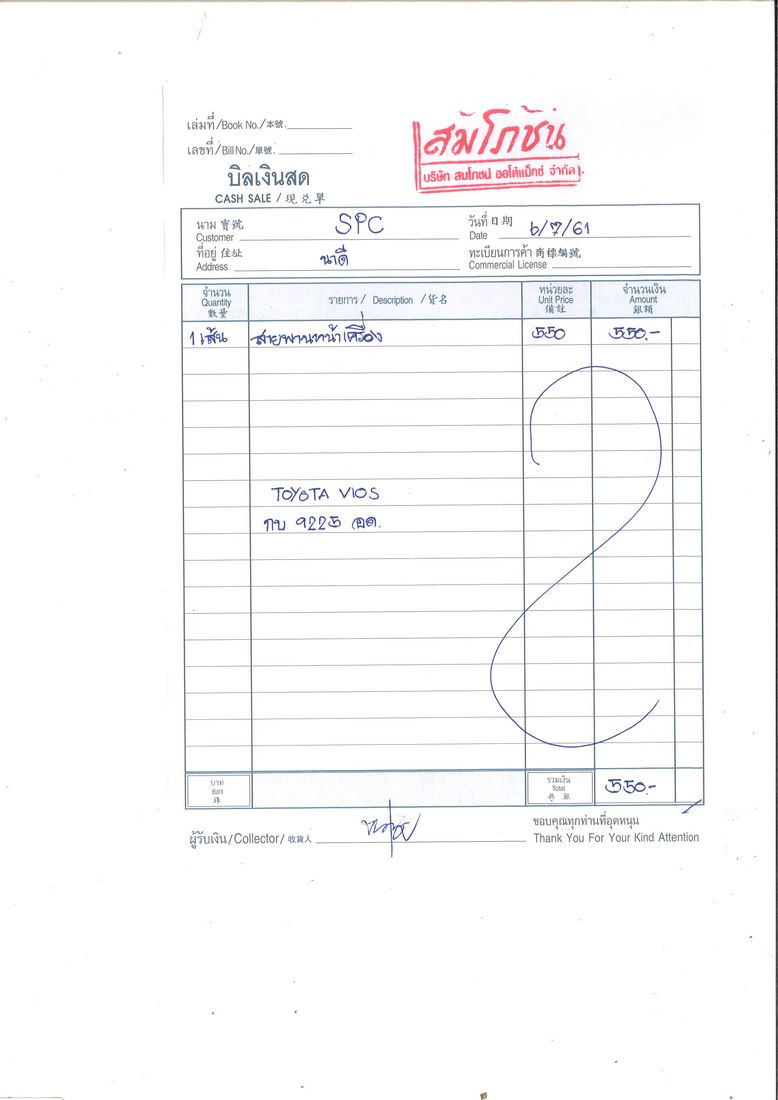 เล่มที่/Book No./本號.
เลขที่/Bill No./單號.
สัมโภชน์
บริษัท สมโภชน์ ออโต้แม็กซ์ จำกัด
บิลเงินสด
CASH SALE / 現兌單
นาม 寶號 SPC วันที่ 日期 6/7/61
Customer Date
ที่อยู่ 住址 นาดี ทะเบียนการค้า 商標編號
Address Commercial License
จำนวน รายการ / Description / 貨名 หน่วยละ จำนวนเงิน
Quantity Unit Price Amount
數量 備註 銀額
1 เส้น สายพานหน้าเครื่อง 550 550.-
TOYOTA VIOS
กบ 9225 อด.
บาท รวมเงิน
Baht Total 550.-
銖 共銀
ผู้รับเงิน/Collector/ 收貨人
ขอบคุณทุกท่านที่อุดหนุน
Thank You For Your Kind Attention